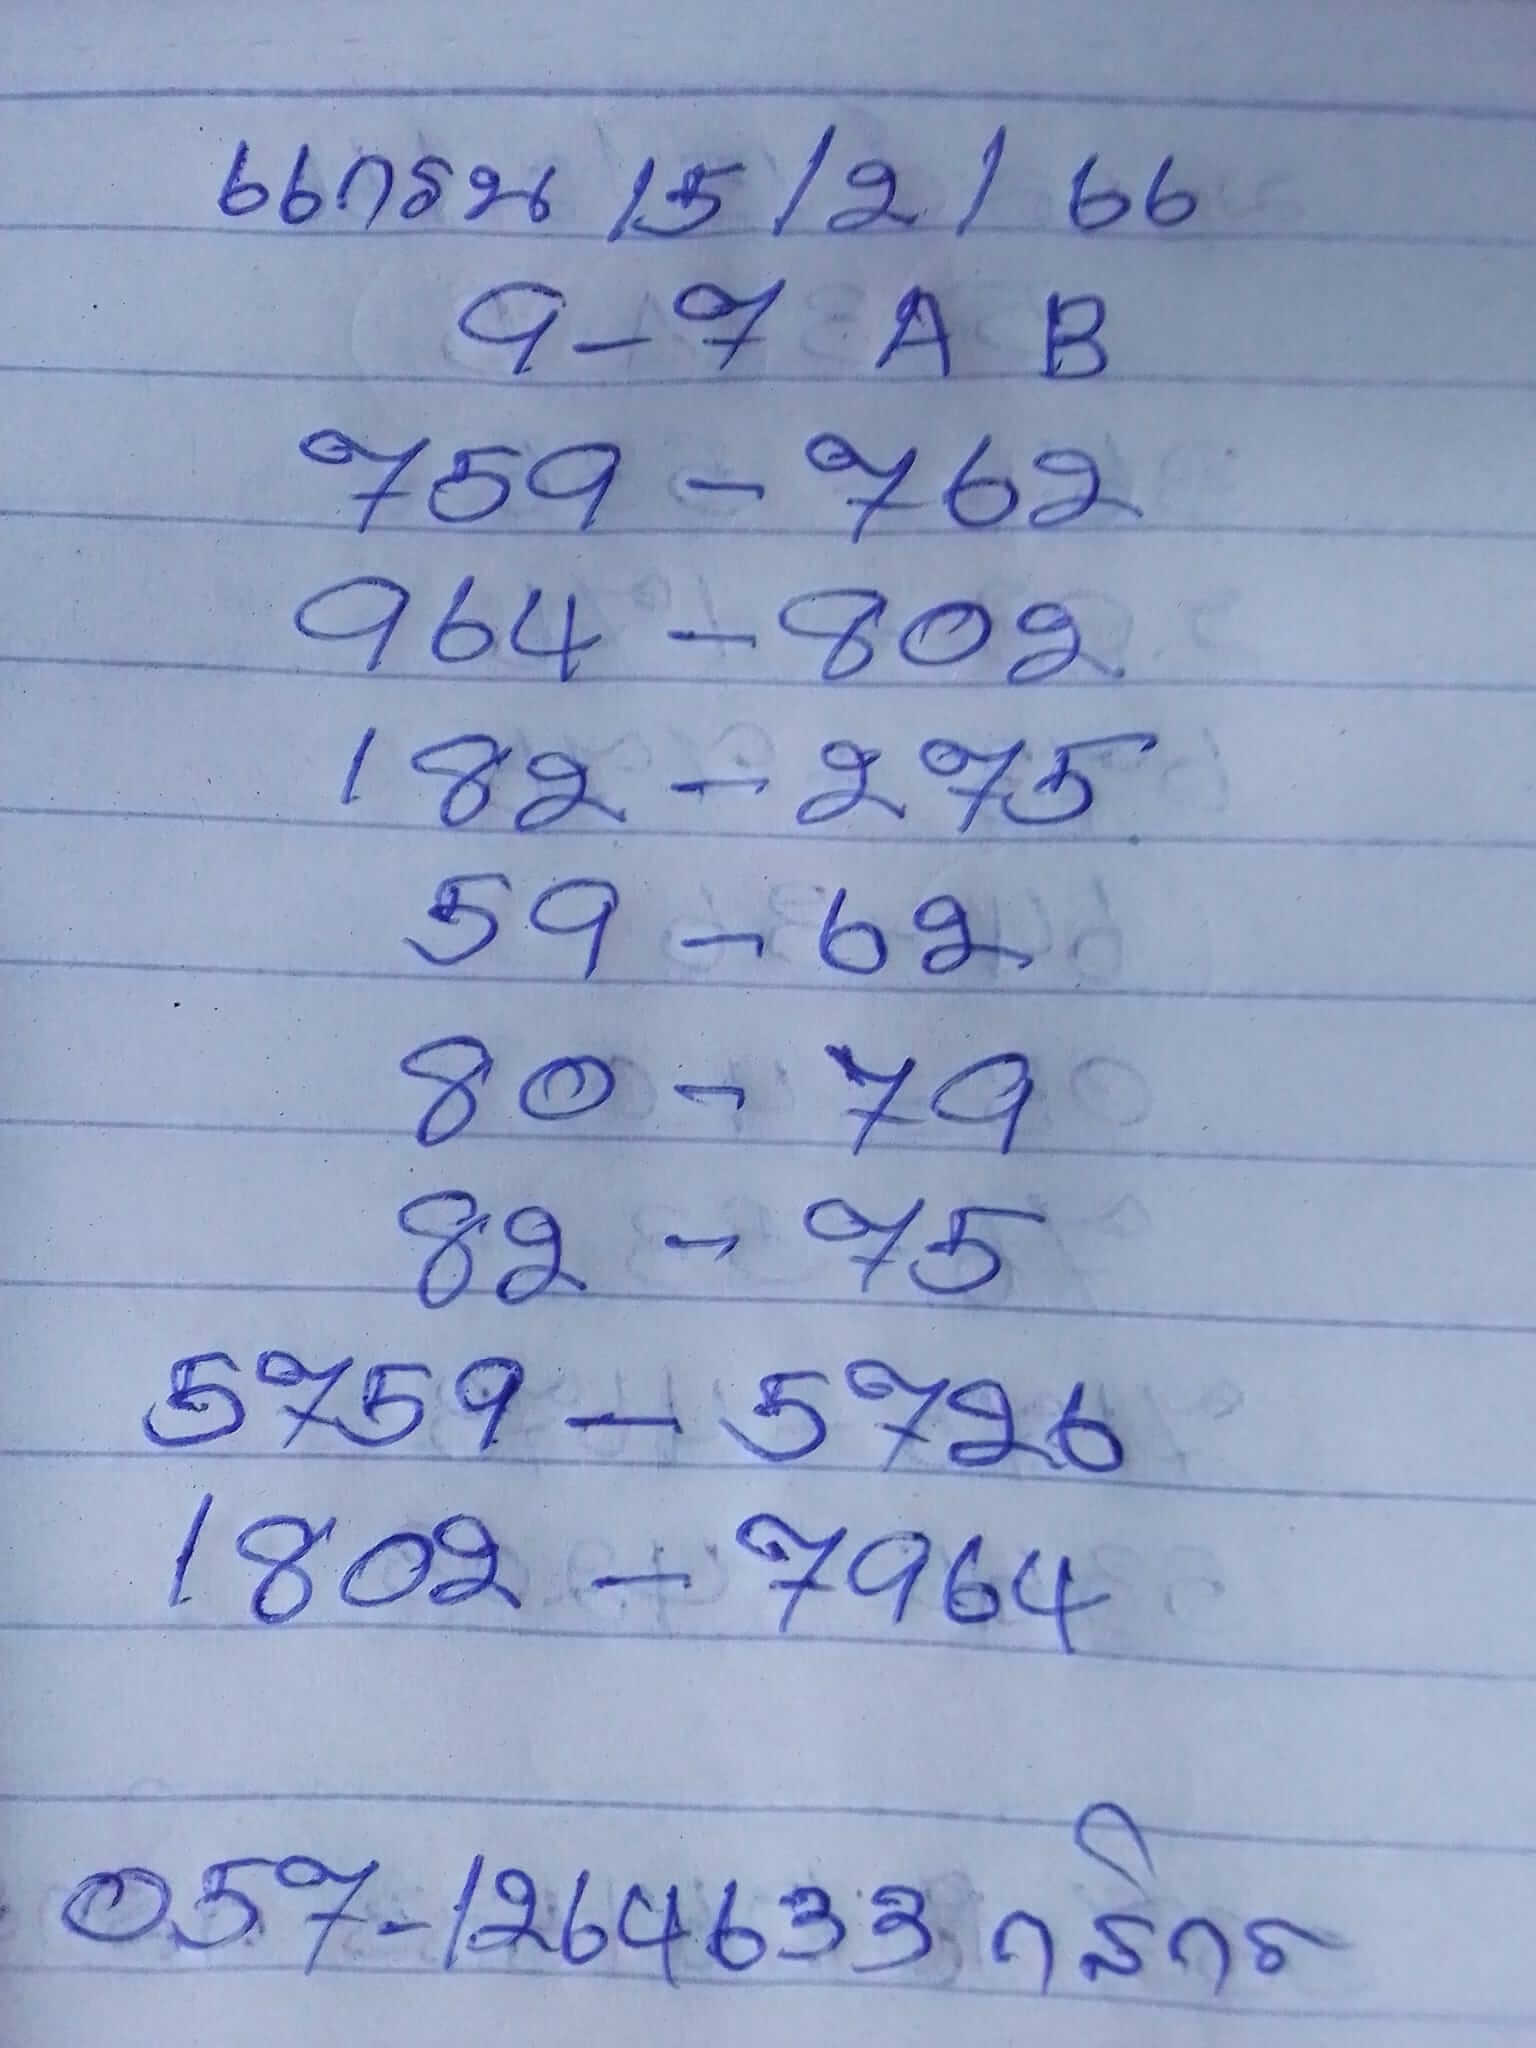 แกรน 15/2/66
9-7 A B
759-762
964-802
182-275
59-62
80-79
82-75
5759-5726
1802-7964
057-1264633 กสิกร